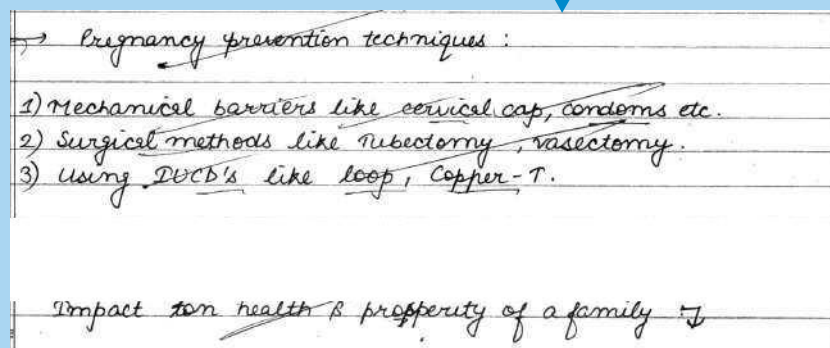 → Pregnancy prevention techniques :
1) Mechanical barriers like cervical cap, condoms etc.
2) Surgical methods like Tubectomy, vasectomy.
3) Using IUCD's like loop, Copper-T.
Impact on health & prosperity of a family